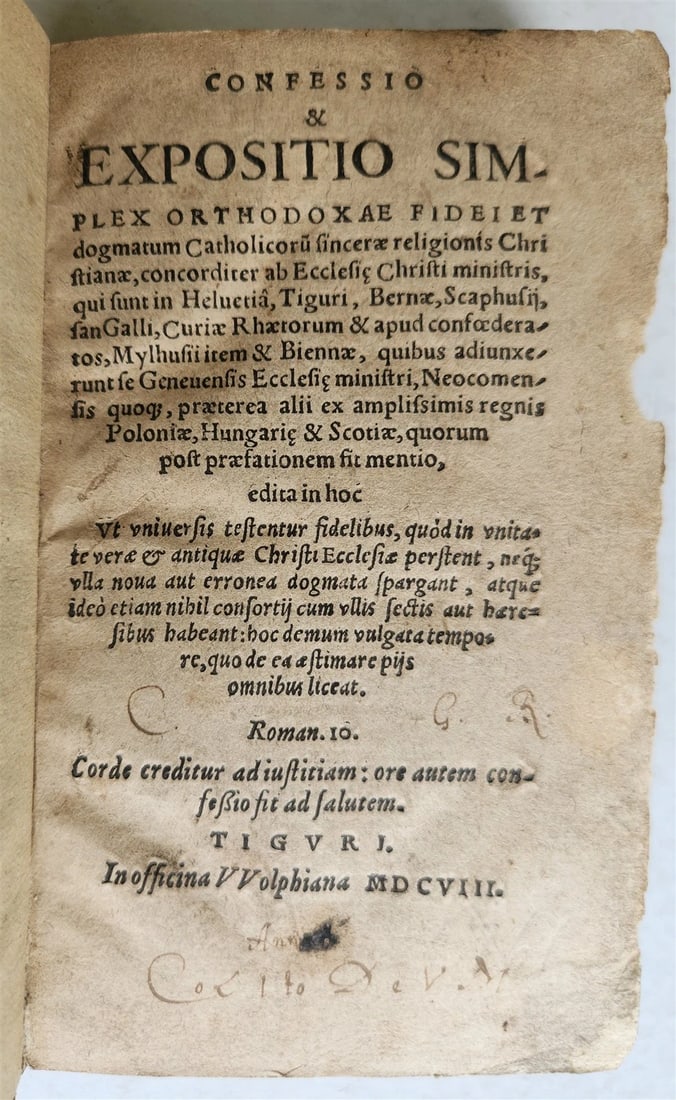 CONFESSIO
&
EXPOSITIO SIM-
PLEX ORTHODOXAE FIDEI ET
dogmatum Catholicorũ ſinceræ religionis Chri
ſtianæ, concorditer ab Eccleſię Chriſti miniſtris,
qui ſunt in Heluetiâ, Tiguri, Bernæ, Scaphuſij,
ſanGalli, Curiæ Rhætorum & apud confœdera-
tos, Mylhuſii item & Biennæ, quibus adiunxe-
runt ſe Geneuenſis Eccleſię miniſtri, Neocomen-
ſis quoq;, præterea alii ex ampliſsimis regnis
Poloniæ, Hungarię & Scotiæ, quorum
poſt præfationem fit mentio,
edita in hoc
Vt vniuerſis teſtentur fidelibus, quòd in vnita-
te veræ & antiquæ Chriſti Eccleſiæ perſtent, neq;
vlla noua aut erronea dogmata ſpargant, atque
ideò etiam nihil conſortij cum vllis ſectis aut hære=
ſibus habeant: hoc demum vulgata tempo-
re, quo de ea æſtimare pijs
omnibus liceat.
C. G. R.
Roman. 10.
Corde creditur ad iuſtitiam: ore autem con-
feßio fit ad ſalutem.
TIGVRI.
In officina VVolphiana MDCVIII.